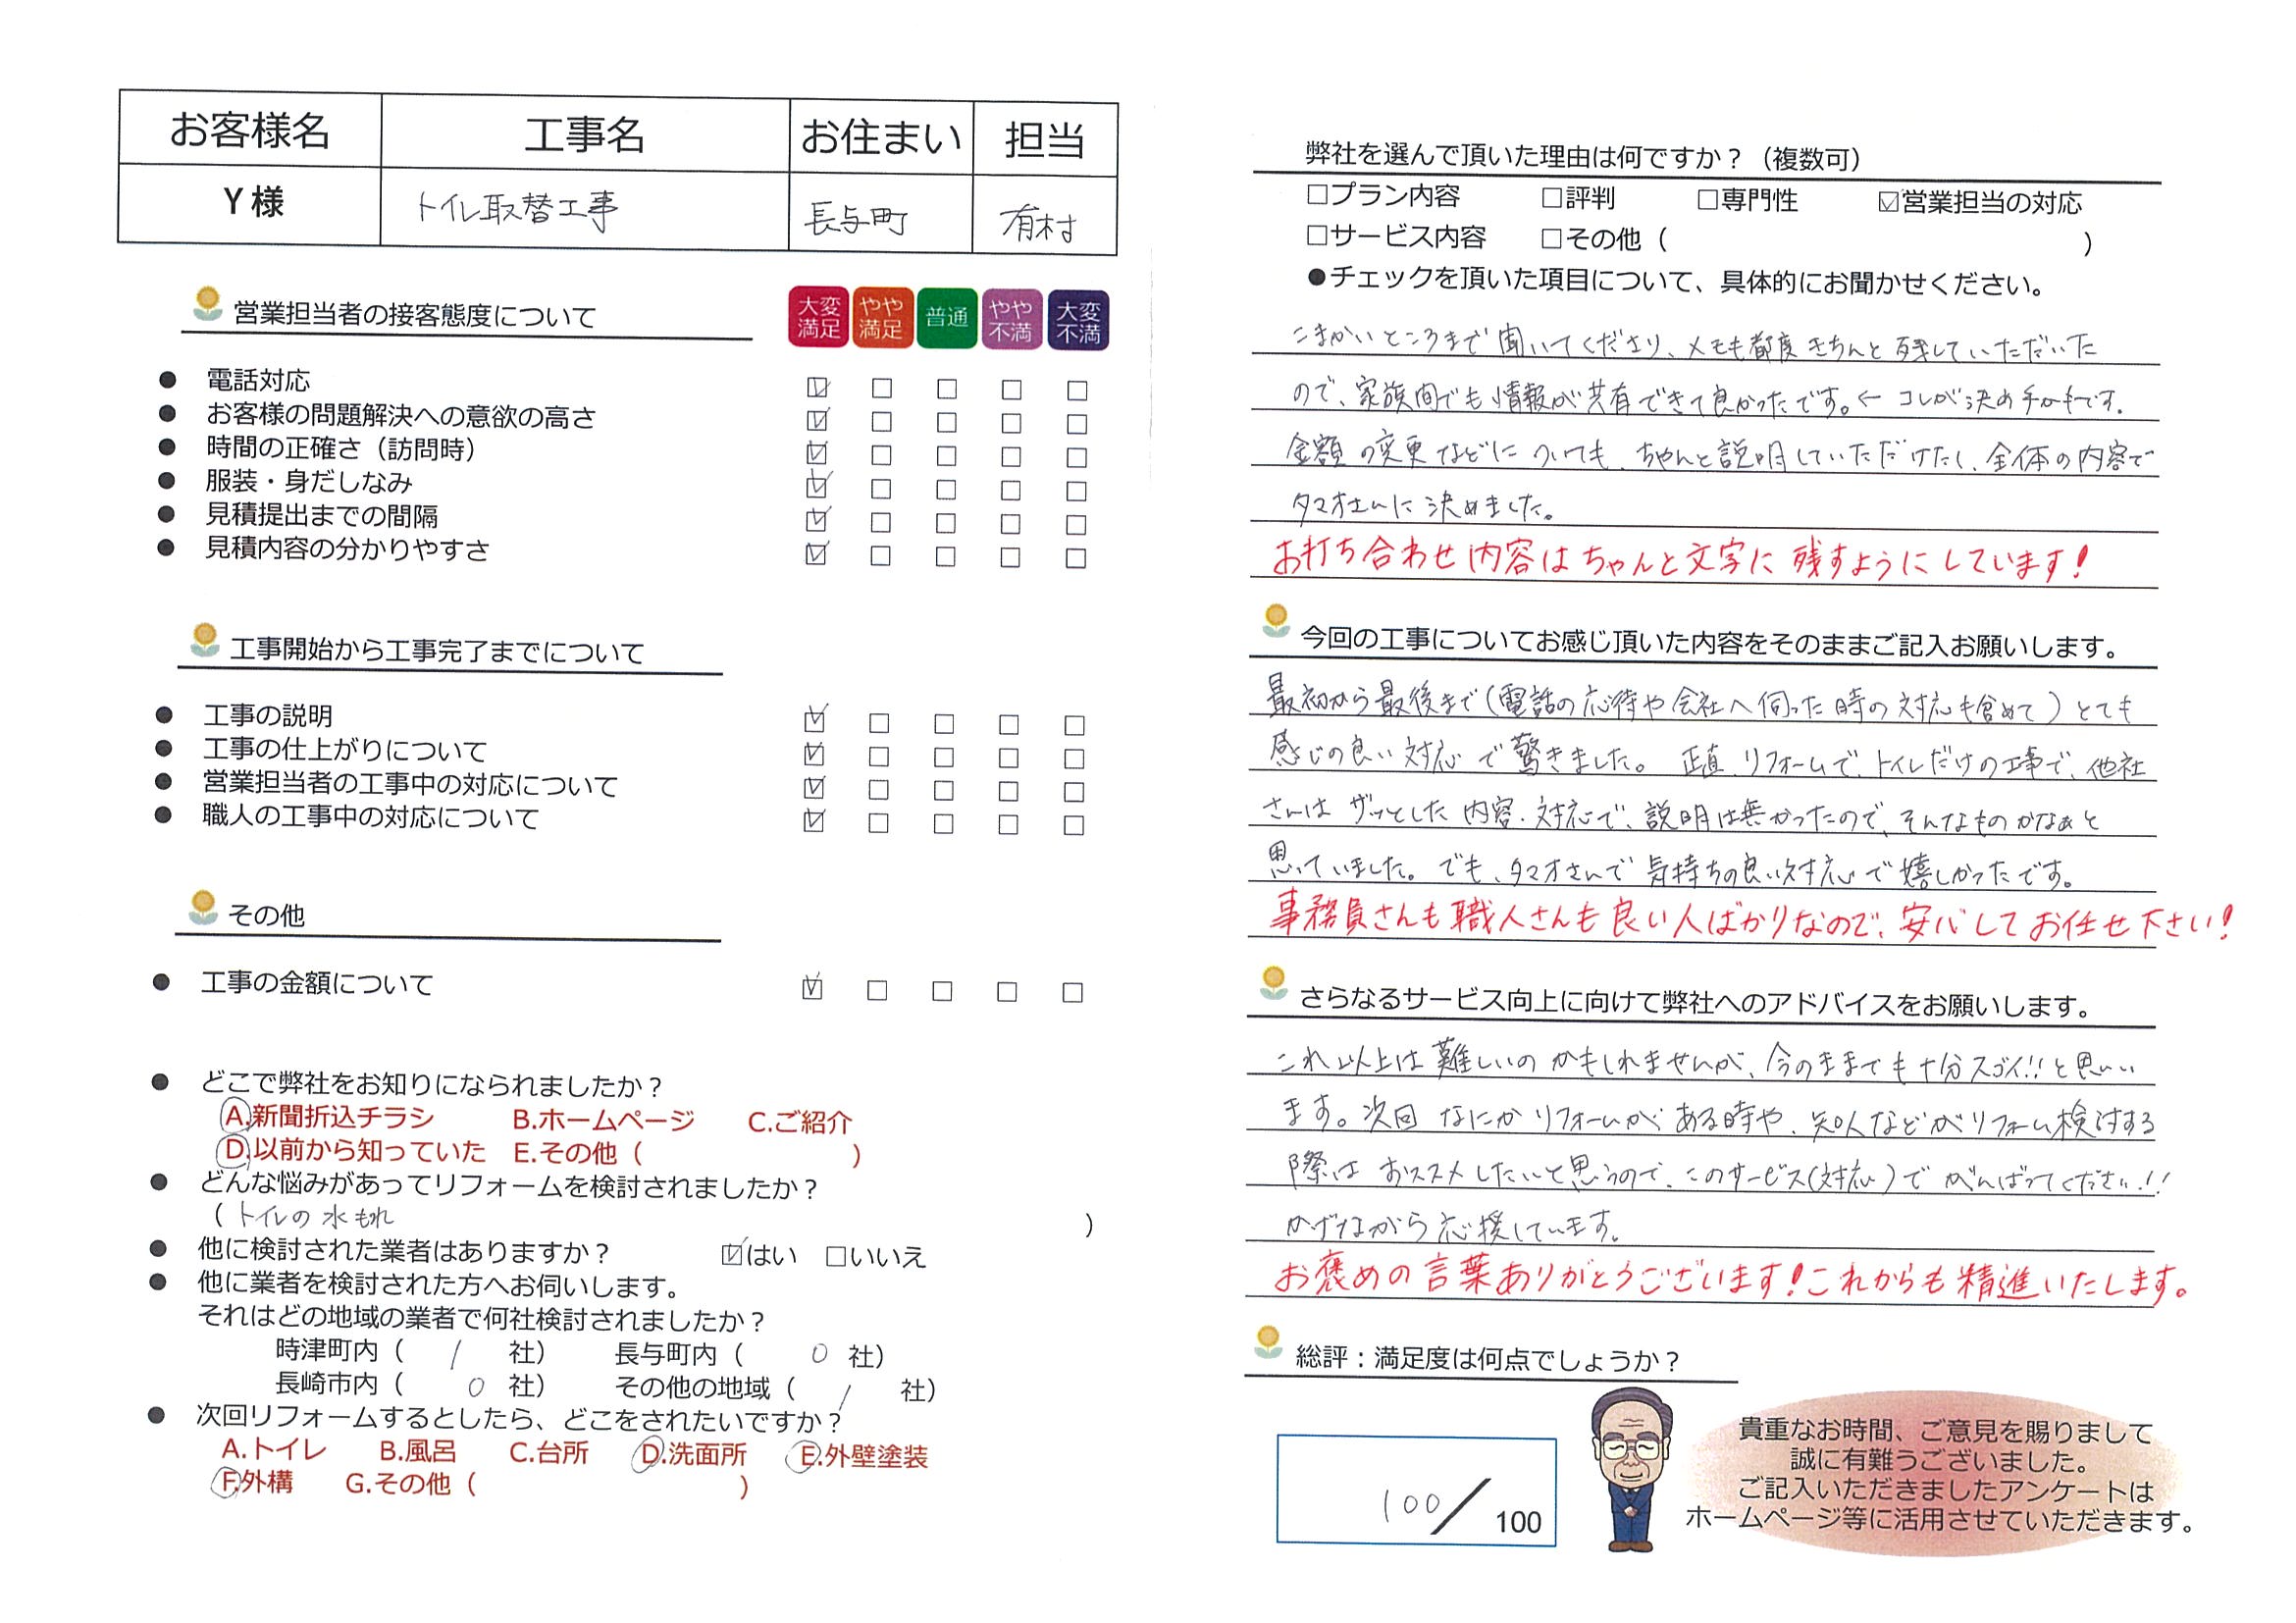 お客様名 工事名 お住まい 担当
Y様 トイレ取替工事 長与町 有村
営業担当者の接客態度について
大変満足 やや満足 普通 やや不満 大変不満
● 電話対応 ☑ □ □ □ □
● お客様の問題解決への意欲の高さ ☑ □ □ □ □
● 時間の正確さ（訪問時） ☑ □ □ □ □
● 服装・身だしなみ ☑ □ □ □ □
● 見積提出までの間隔 ☑ □ □ □ □
● 見積内容の分かりやすさ ☑ □ □ □ □
工事開始から工事完了までについて
● 工事の説明 ☑ □ □ □ □
● 工事の仕上がりについて ☑ □ □ □ □
● 営業担当者の工事中の対応について ☑ □ □ □ □
● 職人の工事中の対応について ☑ □ □ □ □
その他
● 工事の金額について ☑ □ □ □ □
● どこで弊社をお知りになられましたか？
A.新聞折込チラシ B.ホームページ C.ご紹介
D.以前から知っていた E.その他（ ）
● どんな悩みがあってリフォームを検討されましたか？
（トイレの水もれ ）
● 他に検討された業者はありますか？ ☑はい □いいえ
● 他に業者を検討された方へお伺いします。
それはどの地域の業者で何社検討されましたか？
時津町内（ 1 社） 長与町内（ 0 社）
長崎市内（ 0 社） その他の地域（ 1 社）
● 次回リフォームするとしたら、どこをされたいですか？
A.トイレ B.風呂 C.台所 D.洗面所 E.外壁塗装
F.外構 G.その他（ ）
弊社を選んで頂いた理由は何ですか？（複数可）
□プラン内容 □評判 □専門性 ☑営業担当の対応
□サービス内容 □その他（ ）
●チェックを頂いた項目について、具体的にお聞かせください。
こまかいところまで聞いてくださり、メモも都度きちんと残していただいた
ので、家族間でも情報が共有できて良かったです。← コレが決め手かもです.
金額の変更などについても、ちゃんと説明していただけたし、全体の内容で
タマオさんに決めました。
お打ち合わせ内容はちゃんと文字に残すようにしています！
今回の工事についてお感じ頂いた内容をそのままご記入お願いします。
最初から最後まで（電話の応待や会社へ伺った時の対応も含めて）とても
感じの良い対応で驚きました。 正直、リフォームで、トイレだけの工事で、他社
さんはザッとした内容・対応で、説明は無かったので、そんなものかなぁと
思っていました。でも、タマオさんで気持ちの良い対応で嬉しかったです。
事務員さんも職人さんも良い人ばかりなので、安心してお任せ下さい！
さらなるサービス向上に向けて弊社へのアドバイスをお願いします。
これ以上は難しいのかもしれませんが、今のままでも十分スゴイ!!と思い
ます。次回なにかリフォームがある時や、知人などがリフォーム検討する
際はおススメしたいと思うので、このサービス（対応）でがんばってください!!
かげながら応援しています。
お褒めの言葉ありがとうございます！これからも精進いたします。
総評：満足度は何点でしょうか？
100／100
貴重なお時間、ご意見を賜りまして
誠に有難うございました。
ご記入いただきましたアンケートは
ホームページ等に活用させていただきます。